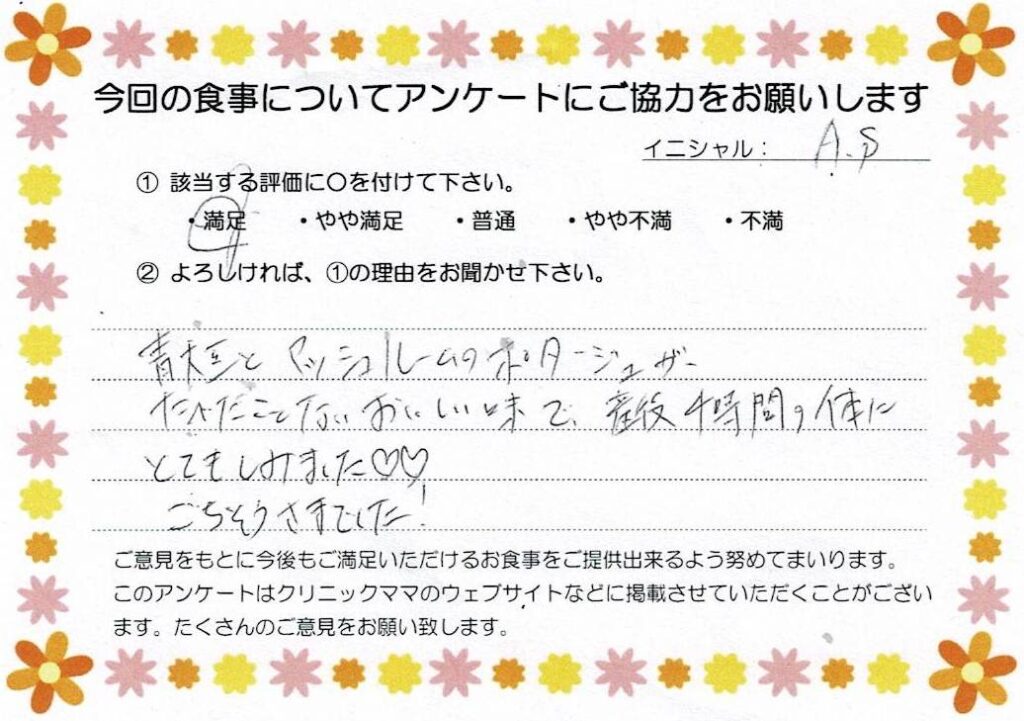 今回の食事についてアンケートにご協力をお願いします
イニシャル： A.S
① 該当する評価に〇を付けて下さい。
・満足 ・やや満足 ・普通 ・やや不満 ・不満
② よろしければ、①の理由をお聞かせ下さい。
青大豆とマッシュルームのポタージュが
たべたことないおいしい味で、産後4時間の体に
とてもしみました♡♡
ごちそうさまでした！
ご意見をもとに今後もご満足いただけるお食事をご提供出来るよう努めてまいります。
このアンケートはクリニックママのウェブサイトなどに掲載させていただくことがござい
ます。たくさんのご意見をお願い致します。